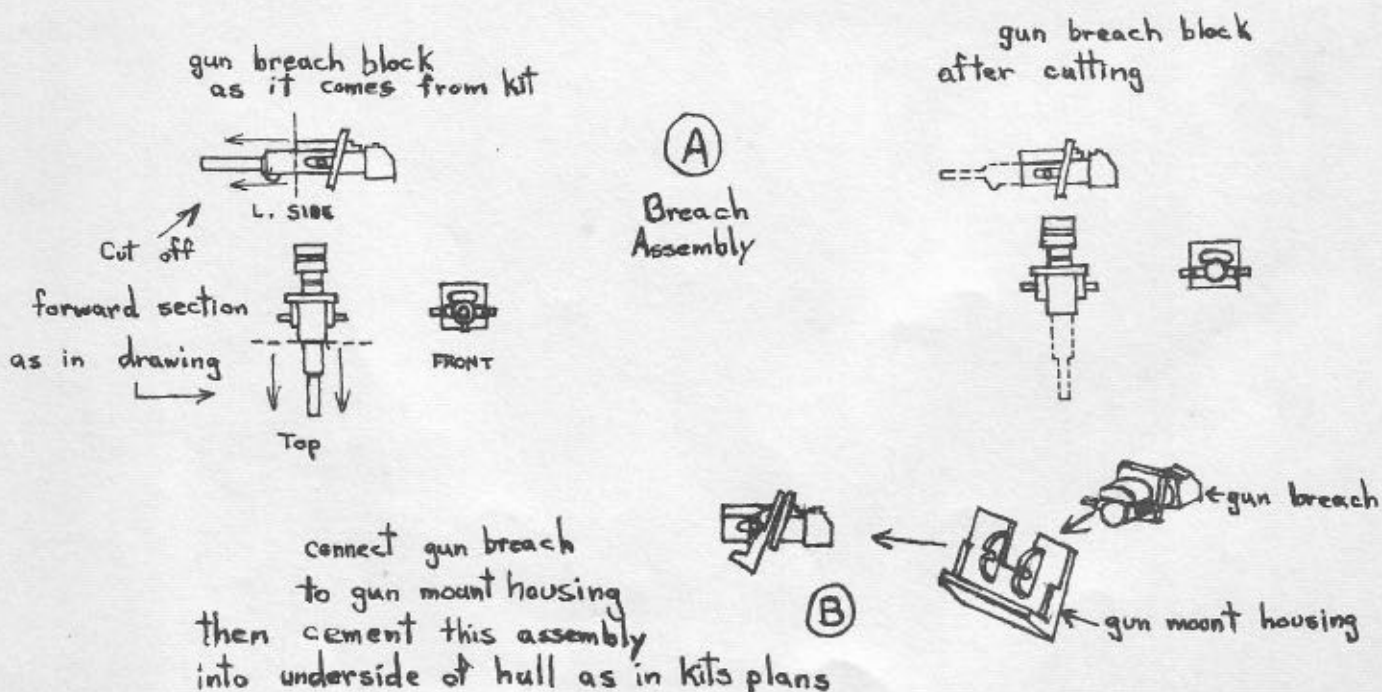 gun breach block
as it comes from kit
L. SIDE
Cut off
forward section
as in drawing
Top
FRONT
A
Breach
Assembly
gun breach block
after cutting
connect gun breach
to gun mount housing
then cement this assembly
into underside of hull as in kits plans
B
gun breach
gun mount housing